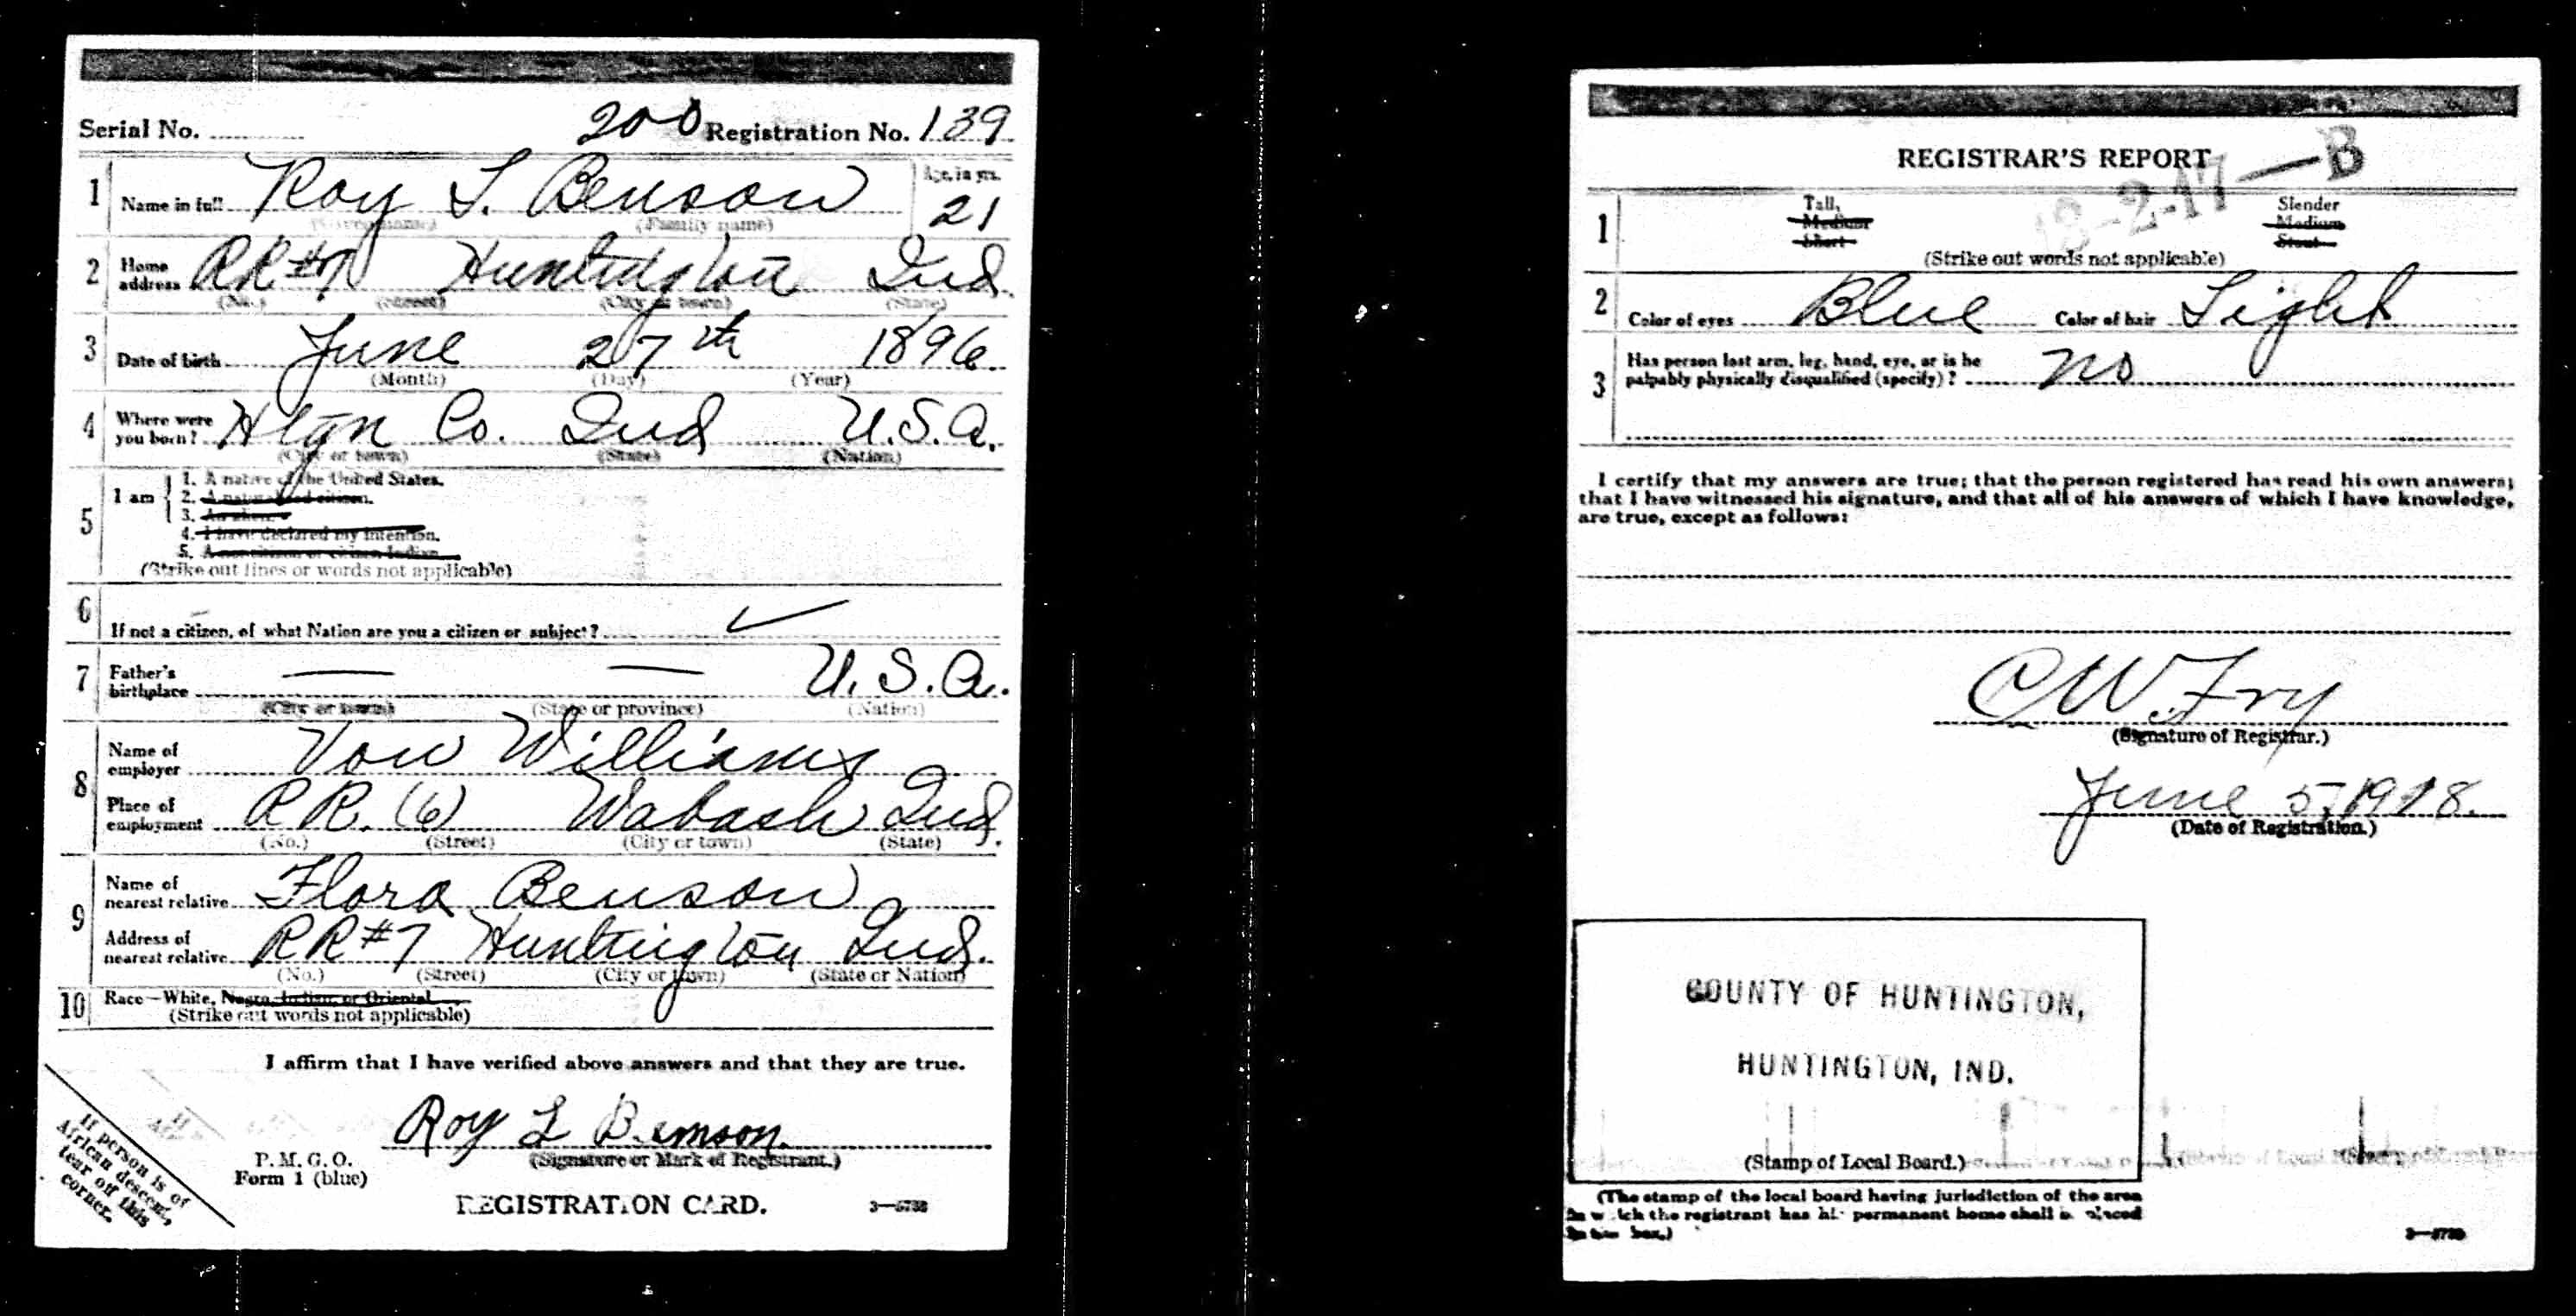 Serial No. 200 Registration No. 139
1 Name in full Roy L. Benson Age, in yrs. 21
(Given name) (Family name)
2 Home address RR#7 Huntington Ind.
(No.) (Street) (City or town) (State)
3 Date of birth June 27th 1896
(Month) (Day) (Year)
4 Where were you born? Htgn Co. Ind U.S.A.
(City or town) (State) (Nation)
5 I am
1. A native of the United States.
2. A naturalized citizen.
3. An alien.
4. I have declared my intention.
5. A noncitizen or citizen Indian.
(Strike out lines or words not applicable)
6 If not a citizen, of what Nation are you a citizen or subject? ✓
7 Father's birthplace — — U.S.A.
(City or town) (State or province) (Nation)
8 Name of employer Von Williams
Place of employment R.R. (6) Wabash Ind.
(No.) (Street) (City or town) (State)
9 Name of nearest relative Flora Benson
Address of nearest relative RR#7 Huntington Ind.
(No.) (Street) (City or town) (State or Nation)
10 Race—White, Negro, Indian, or Oriental
(Strike out words not applicable)
I affirm that I have verified above answers and that they are true.
Roy L Benson
(Signature or Mark of Registrant.)
P. M. G. O.
Form 1 (blue)
REGISTRATION CARD.
If person is of
African descent,
tear off this
corner.
REGISTRAR'S REPORT
13-2-17—B
1 Tall, Slender
Medium Medium
Short Stout
(Strike out words not applicable)
2 Color of eyes Blue Color of hair Light
3 Has person lost arm, leg, hand, eye, or is he
palpably physically disqualified (specify)? no
I certify that my answers are true; that the person registered has read his own answers;
that I have witnessed his signature, and that all of his answers of which I have knowledge,
are true, except as follows:
C W. Fry
(Signature of Registrar.)
June 5, 1918.
(Date of Registration.)
COUNTY OF HUNTINGTON,
HUNTINGTON, IND.
(Stamp of Local Board.)
(The stamp of the local board having jurisdiction of the area
in which the registrant has his permanent home shall be placed
in this box.)